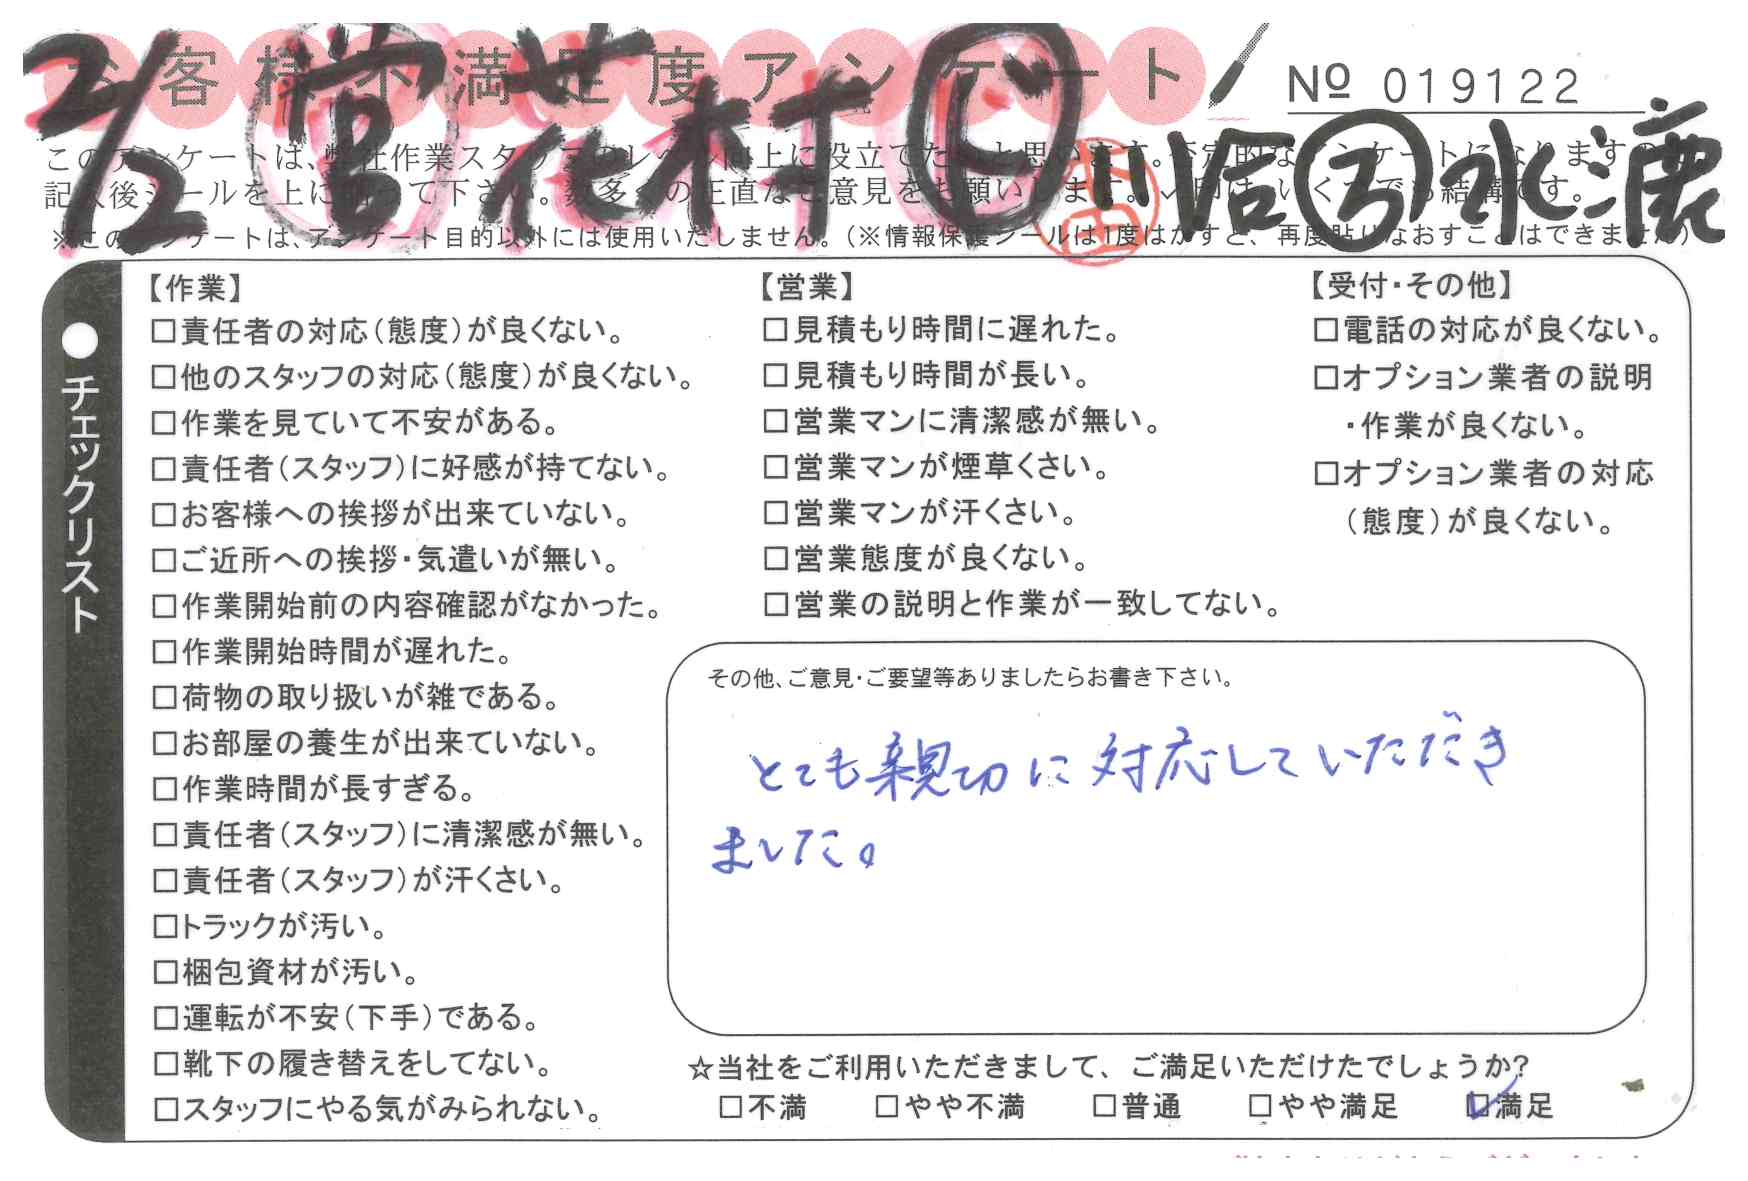 お客様不満足度アンケート
№ 019122
2/2 営 花村 ヒ 小谷 ろ 水漉
このアンケートは、弊社作業スタッフのレベル向上に役立てたいと思います。否定的なアンケートになりますので、
記入後シールを上に貼って下さい。数多くの正直なご意見をお願いします。✓印は、いくつでも結構です。
※このアンケートは、アンケート目的以外には使用いたしません。(※情報保護シールは1度はがすと、再度貼りなおすことはできません)
●チェックリスト
【作業】
□責任者の対応(態度)が良くない。
□他のスタッフの対応(態度)が良くない。
□作業を見ていて不安がある。
□責任者(スタッフ)に好感が持てない。
□お客様への挨拶が出来ていない。
□ご近所への挨拶・気遣いが無い。
□作業開始前の内容確認がなかった。
□作業開始時間が遅れた。
□荷物の取り扱いが雑である。
□お部屋の養生が出来ていない。
□作業時間が長すぎる。
□責任者(スタッフ)に清潔感が無い。
□責任者(スタッフ)が汗くさい。
□トラックが汚い。
□梱包資材が汚い。
□運転が不安(下手)である。
□靴下の履き替えをしてない。
□スタッフにやる気がみられない。
【営業】
□見積もり時間に遅れた。
□見積もり時間が長い。
□営業マンに清潔感が無い。
□営業マンが煙草くさい。
□営業マンが汗くさい。
□営業態度が良くない。
□営業の説明と作業が一致してない。
【受付・その他】
□電話の対応が良くない。
□オプション業者の説明
・作業が良くない。
□オプション業者の対応
(態度)が良くない。
その他、ご意見・ご要望等ありましたらお書き下さい。
とても親切に対応していただき
ました。
☆当社をご利用いただきまして、ご満足いただけたでしょうか?
□不満 □やや不満 □普通 □やや満足 ☑満足